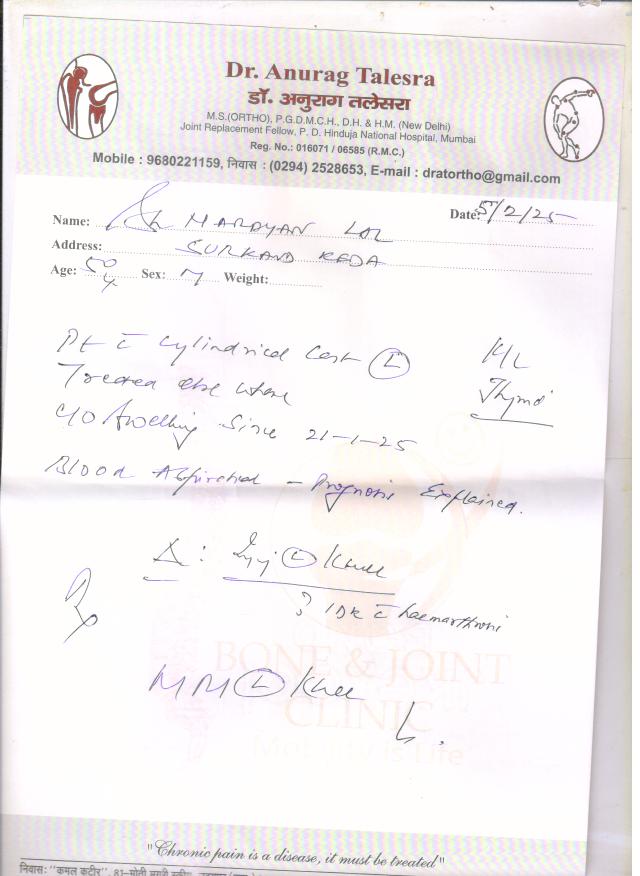 Dr. Anurag Talesra
डॉ. अनुराग तलेसरा
M.S.(ORTHO), P.G.D.M.C.H., D.H. & H.M. (New Delhi)
Joint Replacement Fellow, P. D. Hinduja National Hospital, Mumbai
Reg. No.: 016071 / 06585 (R.M.C.)
Mobile : 9680221159, निवास : (0294) 2528653, E-mail : dratortho@gmail.com
Date: 5/2/25
Name: Sh MARDYAN LAL
Address: SURKAND KEDA
Age: 50 y Sex: M Weight:
Pt c̄ Cylindrical Cast Ⓛ
Treated else where
C/O Swelling Since 21-1-25
H/L
Blood Aspirated - Prognosis Explained.
Δ: Inj Ⓛ Knee
? IDK c̄ haemarthrosis
Rx
BONE & JOINT
CLINIC
Mobility is Life
Ⓛ Knee
"Chronic pain is a disease, it must be treated"
निवास: "कमल कुटीर", 81-मोती मगरी स्कीम,